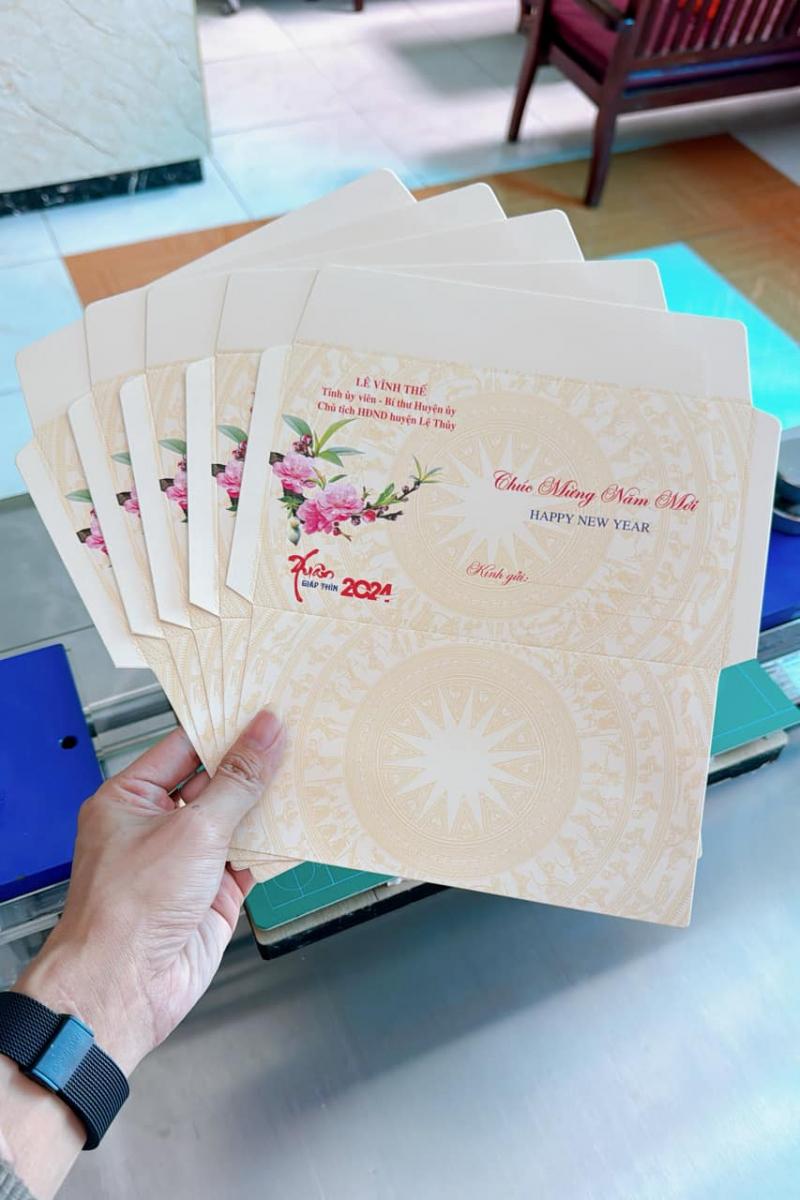 LÊ VĨNH THẾ
Tỉnh ủy viên - Bí thư Huyện ủy
Chủ tịch HĐND huyện Lệ Thủy
Chúc Mừng Năm Mới
HAPPY NEW YEAR
Kính gửi:
Xuân
GIÁP THÌN 2024